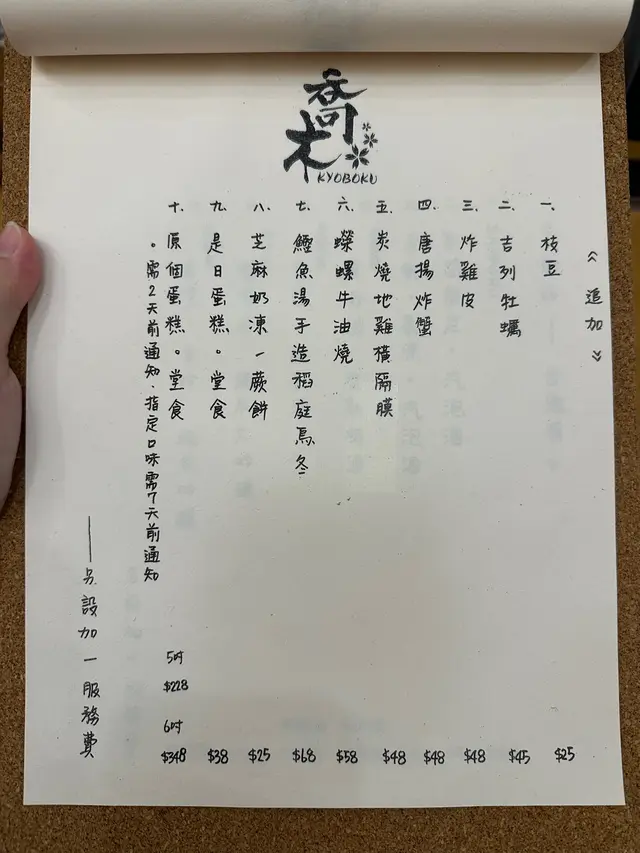 喬木
KYOBOKU
《追加》
一、枝豆 $25
二、吉列牡蠣 $45
三、炸雞皮 $48
四、唐揚炸蟹 $48
五、炭燒地雞橫隔膜 $48
六、蠑螺牛油燒 $58
七、鰹魚湯手造稻庭烏冬 $68
八、芝麻奶凍一蕨餅 $25
九、是日蛋糕。堂食 $38
十、原個蛋糕。堂食 5吋 $228 6吋 $348
。需2天前通知、指定口味需7天前通知
——另設加一服務費